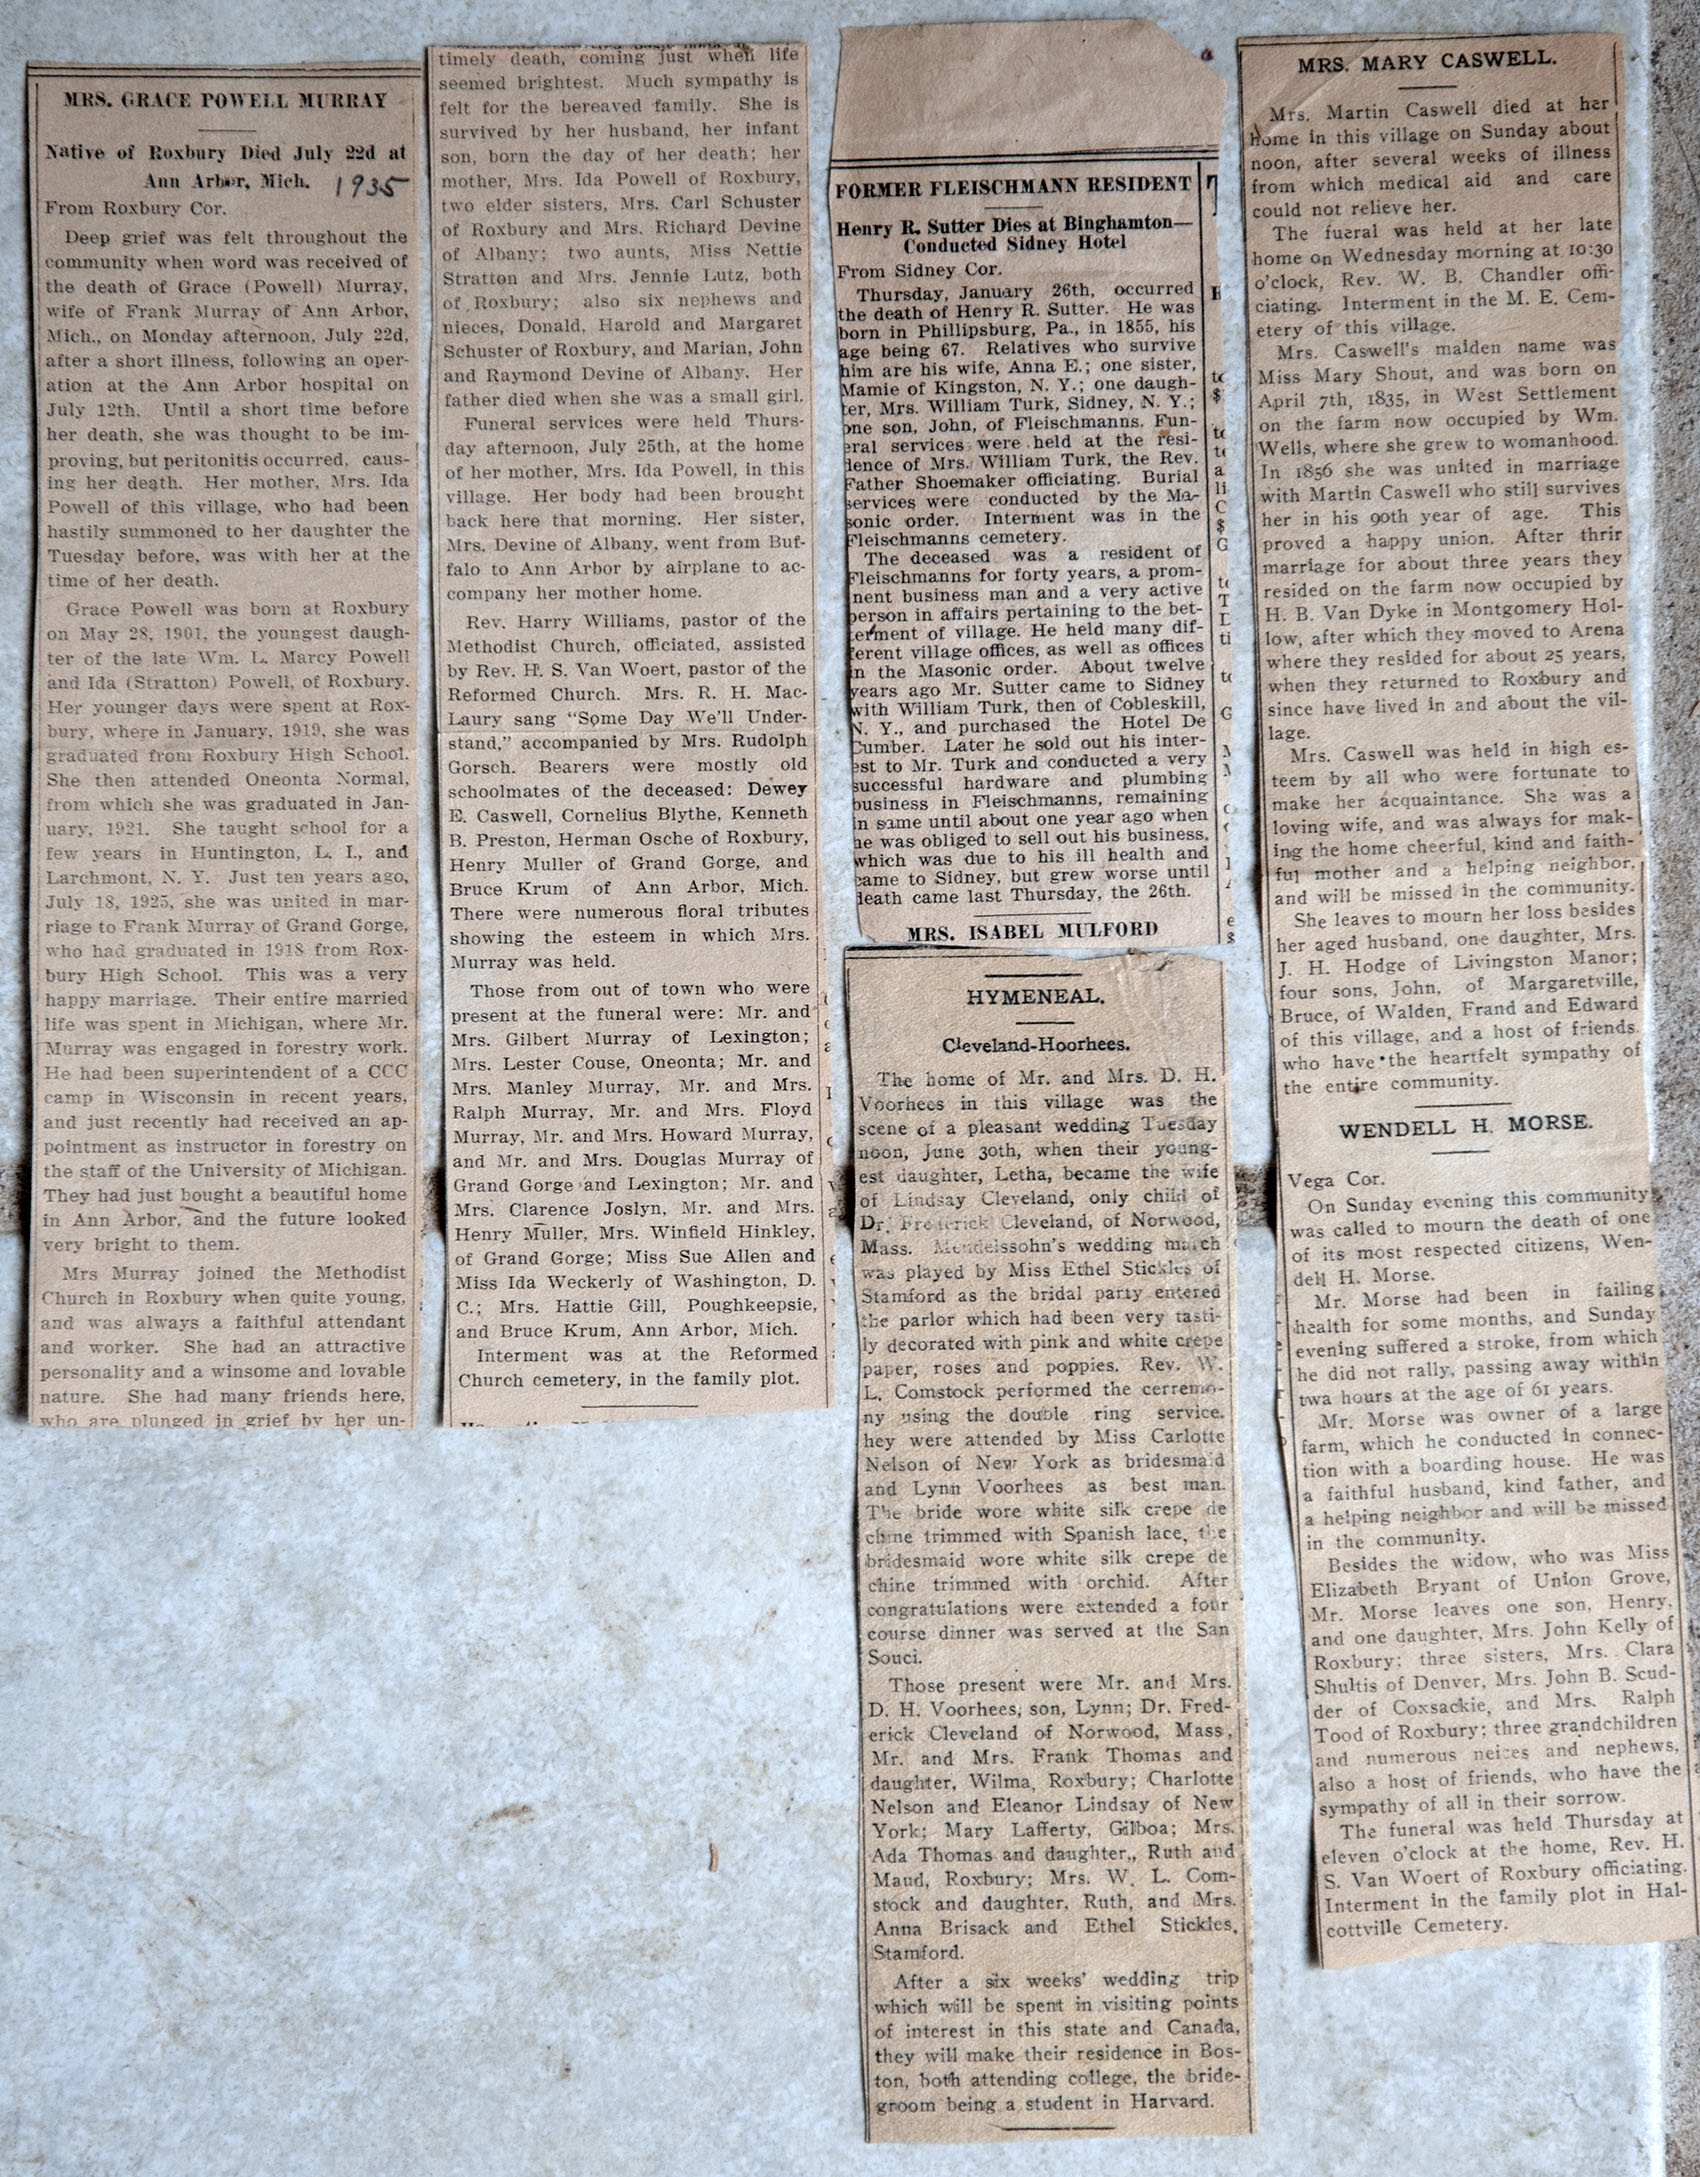 MRS. GRACE POWELL MURRAY
Native of Roxbury Died July 22d at
Ann Arbor, Mich. 1935
From Roxbury Cor.
Deep grief was felt throughout the
community when word was received of
the death of Grace (Powell) Murray,
wife of Frank Murray of Ann Arbor,
Mich., on Monday afternoon, July 22d,
after a short illness, following an oper-
ation at the Ann Arbor hospital on
July 12th. Until a short time before
her death, she was thought to be im-
proving, but peritonitis occurred, caus-
ing her death. Her mother, Mrs. Ida
Powell of this village, who had been
hastily summoned to her daughter the
Tuesday before, was with her at the
time of her death.
Grace Powell was born at Roxbury
on May 28, 1901, the youngest daugh-
ter of the late Wm. L. Marcy Powell
and Ida (Stratton) Powell, of Roxbury.
Her younger days were spent at Rox-
bury, where in January, 1919, she was
graduated from Roxbury High School.
She then attended Oneonta Normal,
from which she was graduated in Jan-
uary, 1921. She taught school for a
few years in Huntington, L. I., and
Larchmont, N. Y. Just ten years ago,
July 18, 1925, she was united in mar-
riage to Frank Murray of Grand Gorge,
who had graduated in 1918 from Rox-
bury High School. This was a very
happy marriage. Their entire married
life was spent in Michigan, where Mr.
Murray was engaged in forestry work.
He had been superintendent of a CCC
camp in Wisconsin in recent years,
and just recently had received an ap-
pointment as instructor in forestry on
the staff of the University of Michigan.
They had just bought a beautiful home
in Ann Arbor, and the future looked
very bright to them.
Mrs Murray joined the Methodist
Church in Roxbury when quite young,
and was always a faithful attendant
and worker. She had an attractive
personality and a winsome and lovable
nature. She had many friends here,
who are plunged in grief by her un-
timely death, coming just when life
seemed brightest. Much sympathy is
felt for the bereaved family. She is
survived by her husband, her infant
son, born the day of her death; her
mother, Mrs. Ida Powell of Roxbury,
two elder sisters, Mrs. Carl Schuster
of Roxbury and Mrs. Richard Devine
of Albany; two aunts, Miss Nettie
Stratton and Mrs. Jennie Lutz, both
of Roxbury; also six nephews and
nieces, Donald, Harold and Margaret
Schuster of Roxbury, and Marian, John
and Raymond Devine of Albany. Her
father died when she was a small girl.
Funeral services were held Thurs-
day afternoon, July 25th, at the home
of her mother, Mrs. Ida Powell, in this
village. Her body had been brought
back here that morning. Her sister,
Mrs. Devine of Albany, went from Buf-
falo to Ann Arbor by airplane to ac-
company her mother home.
Rev. Harry Williams, pastor of the
Methodist Church, officiated, assisted
by Rev. H. S. Van Woert, pastor of the
Reformed Church. Mrs. R. H. Mac-
Laury sang "Some Day We'll Under-
stand," accompanied by Mrs. Rudolph
Gorsch. Bearers were mostly old
schoolmates of the deceased: Dewey
E. Caswell, Cornelius Blythe, Kenneth
B. Preston, Herman Osche of Roxbury,
Henry Muller of Grand Gorge, and
Bruce Krum of Ann Arbor, Mich.
There were numerous floral tributes
showing the esteem in which Mrs.
Murray was held.
Those from out of town who were
present at the funeral were: Mr. and
Mrs. Gilbert Murray of Lexington;
Mrs. Lester Couse, Oneonta; Mr. and
Mrs. Manley Murray, Mr. and Mrs.
Ralph Murray, Mr. and Mrs. Floyd
Murray, Mr. and Mrs. Howard Murray,
and Mr. and Mrs. Douglas Murray of
Grand Gorge and Lexington; Mr. and
Mrs. Clarence Joslyn, Mr. and Mrs.
Henry Muller, Mrs. Winfield Hinkley,
of Grand Gorge; Miss Sue Allen and
Miss Ida Weckerly of Washington, D.
C.; Mrs. Hattie Gill, Poughkeepsie,
and Bruce Krum, Ann Arbor, Mich.
Interment was at the Reformed
Church cemetery, in the family plot.
FORMER FLEISCHMANN RESIDENT
Henry R. Sutter Dies at Binghamton—
Conducted Sidney Hotel
From Sidney Cor.
Thursday, January 26th, occurred
the death of Henry R. Sutter. He was
born in Phillipsburg, Pa., in 1855, his
age being 67. Relatives who survive
him are his wife, Anna E.; one sister,
Mamie of Kingston, N. Y.; one daugh-
ter, Mrs. William Turk, Sidney, N. Y.;
one son, John, of Fleischmanns. Fun-
eral services were held at the resi-
dence of Mrs. William Turk, the Rev.
Father Shoemaker officiating. Burial
services were conducted by the Ma-
sonic order. Interment was in the
Fleischmanns cemetery.
The deceased was a resident of
Fleischmanns for forty years, a prom-
nent business man and a very active
person in affairs pertaining to the bet-
terment of village. He held many dif-
ferent village offices, as well as offices
in the Masonic order. About twelve
years ago Mr. Sutter came to Sidney
with William Turk, then of Cobleskill,
N. Y., and purchased the Hotel De
Cumber. Later he sold out his inter-
est to Mr. Turk and conducted a very
successful hardware and plumbing
business in Fleischmanns, remaining
in same until about one year ago when
he was obliged to sell out his business,
which was due to his ill health and
came to Sidney, but grew worse until
death came last Thursday, the 26th.
MRS. ISABEL MULFORD
HYMENEAL.
Cleveland-Hoorhees.
The home of Mr. and Mrs. D. H.
Voorhees in this village was the
scene of a pleasant wedding Tuesday
noon, June 30th, when their young-
est daughter, Letha, became the wife
of Lindsay Cleveland, only child of
Dr. Frederick Cleveland, of Norwood,
Mass. Mendelssohn's wedding march
was played by Miss Ethel Stickles of
Stamford as the bridal party entered
the parlor which had been very tasti-
ly decorated with pink and white crepe
paper, roses and poppies. Rev. W.
L. Comstock performed the cerremo-
ny using the double ring service.
hey were attended by Miss Carlotte
Nelson of New York as bridesmaid
and Lynn Voorhees as best man.
The bride wore white silk crepe de
chine trimmed with Spanish lace, the
bridesmaid wore white silk crepe de
chine trimmed with orchid. After
congratulations were extended a four
course dinner was served at the San
Souci.
Those present were Mr. and Mrs.
D. H. Voorhees, son, Lynn; Dr. Fred-
erick Cleveland of Norwood, Mass,
Mr. and Mrs. Frank Thomas and
daughter, Wilma, Roxbury; Charlotte
Nelson and Eleanor Lindsay of New
York; Mary Lafferty, Gilboa; Mrs.
Ada Thomas and daughter,, Ruth and
Maud, Roxbury; Mrs. W. L. Com-
stock and daughter, Ruth, and Mrs.
Anna Brisack and Ethel Stickles,
Stamford.
After a six weeks' wedding trip
which will be spent in visiting points
of interest in this state and Canada,
they will make their residence in Bos-
ton, both attending college, the bride-
groom being a student in Harvard.
MRS. MARY CASWELL.
Mrs. Martin Caswell died at her
home in this village on Sunday about
noon, after several weeks of illness
from which medical aid and care
could not relieve her.
The fueral was held at her late
home on Wednesday morning at 10:30
o'clock, Rev. W. B. Chandler offi-
ciating. Interment in the M. E. Cem-
etery of this village.
Mrs. Caswell's maiden name was
Miss Mary Shout, and was born on
April 7th, 1835, in West Settlement
on the farm now occupied by Wm.
Wells, where she grew to womanhood.
In 1856 she was united in marriage
with Martin Caswell who still survives
her in his 90th year of age. This
proved a happy union. After thrir
marriage for about three years they
resided on the farm now occupied by
H. B. Van Dyke in Montgomery Hol-
low, after which they moved to Arena
where they resided for about 25 years,
when they returned to Roxbury and
since have lived in and about the vil-
lage.
Mrs. Caswell was held in high es-
teem by all who were fortunate to
make her acquaintance. She was a
loving wife, and was always for mak-
ing the home cheerful, kind and faith-
ful mother and a helping neighbor,
and will be missed in the community.
She leaves to mourn her loss besides
her aged husband, one daughter, Mrs.
J. H. Hodge of Livingston Manor;
four sons, John, of Margaretville,
Bruce, of Walden, Frand and Edward
of this village, and a host of friends
who have the heartfelt sympathy of
the entire community.
WENDELL H. MORSE.
Vega Cor.
On Sunday evening this community
was called to mourn the death of one
of its most respected citizens, Wen-
dell H. Morse.
Mr. Morse had been in failing
health for some months, and Sunday
evening suffered a stroke, from which
he did not rally, passing away within
twa hours at the age of 61 years.
Mr. Morse was owner of a large
farm, which he conducted in connec-
tion with a boarding house. He was
a faithful husband, kind father, and
a helping neighbor and will be missed
in the community.
Besides the widow, who was Miss
Elizabeth Bryant of Union Grove,
Mr. Morse leaves one son, Henry,
and one daughter, Mrs. John Kelly of
Roxbury; three sisters, Mrs. Clara
Shultis of Denver, Mrs. John B. Scud-
der of Coxsackie, and Mrs. Ralph
Tood of Roxbury; three grandchildren
and numerous neices and nephews,
also a host of friends, who have the
sympathy of all in their sorrow.
The funeral was held Thursday at
eleven o'clock at the home, Rev. H.
S. Van Woert of Roxbury officiating.
Interment in the family plot in Hal-
cottville Cemetery.